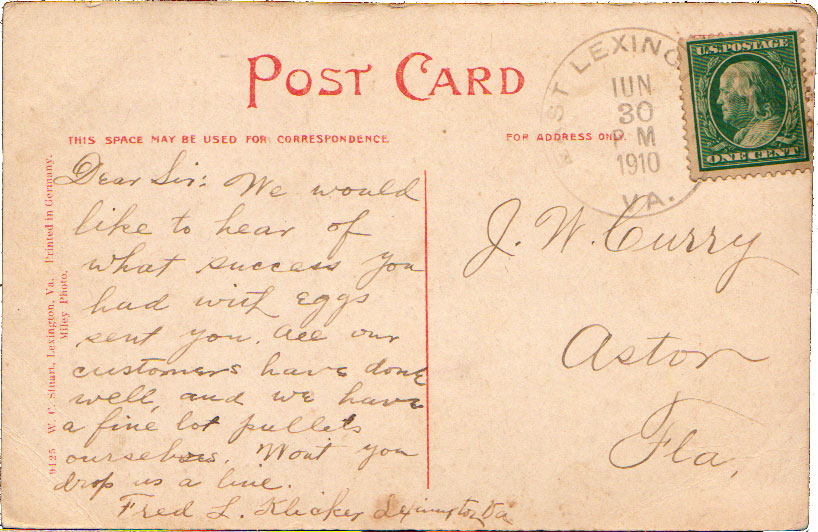 POST CARD
THIS SPACE MAY BE USED FOR CORRESPONDENCE
FOR ADDRESS ONLY.
ST LEXING
JUN
30
PM
1910
VA.
U.S. POSTAGE
ONE CENT
9425 W. C. Stuart, Lexington, Va. Printed in Germany.
Miley Photo.
Dear Sir: We would
like to hear of
what success you
had with eggs
sent you. All our
customers have done
well, and we have
a fine lot pullets
ourselves. Wont you
drop us a line.
Fred L. Lexington Va
J. W. Curry
Astor
Fla.